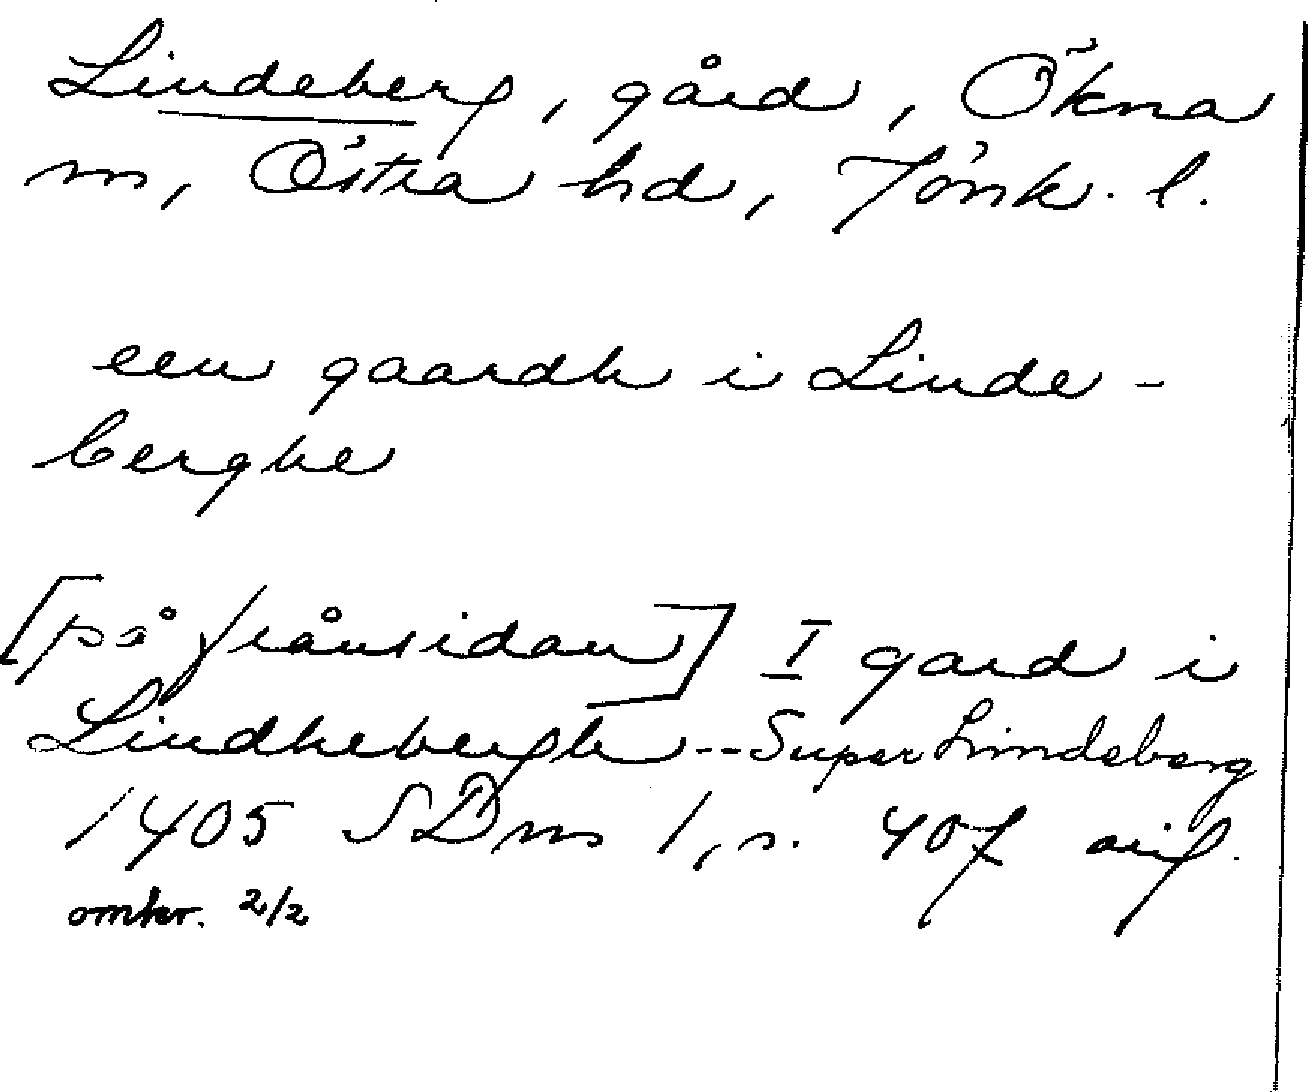 Lindeberg, gård, Ökna
sn, Östra hd, Jönk. l.
een gaardh i Linde-
berghe
[på frånsidan] I gard i
Lindhebergh -- Super Lindeberg
1405 SDns 1, s. 407 avf.
omkr. 2/2